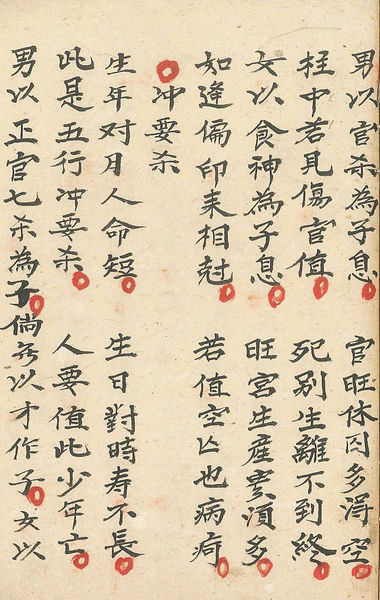 男以官杀為子息 官旺休囚多淂空
柱中若見傷官值 死别生離不到終
女以食神為子息 旺宮生產須多
如逢偏印来相尅 若值空亡也病疴
冲要杀
生年对月人命短 生日對時寿不長
此是五行冲要杀 人要值此少年亡
男以正官七杀為子倘无以才作子女以